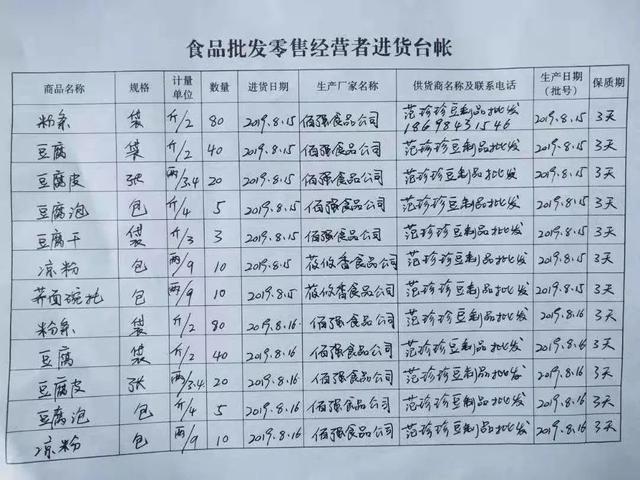 食品批发零售经营者进货台帐
商品名称 规格 计量单位 数量 进货日期 生产厂家名称 供货商名称及联系电话 生产日期(批号) 保质期
粉条 袋 斤/2 80 2019.8.15 佰强食品公司 范珍珍豆制品批发 18698431546 2019.8.15 3天
豆腐 袋 斤/2 40 2019.8.15 佰强食品公司 范珍珍豆制品批发 2019.8.15 3天
豆腐皮 张 两/3.4 20 2019.8.15 佰强食品公司 范珍珍豆制品批发 2019.8.15 3天
豆腐泡 包 斤/4 5 2019.8.15 佰强食品公司 范珍珍豆制品批发 2019.8.15 3天
豆腐干 袋 斤/3 3 2019.8.15 佰强食品公司 范珍珍豆制品批发 2019.8.15 3天
凉粉 包 两/9 10 2019.8.15 莜攸香食品公司 范珍珍豆制品批发 2019.8.15 3天
荞面碗托 包 两/9 10 2019.8.15 莜攸香食品公司 范珍珍豆制品批发 2019.8.15 3天
粉条 袋 斤/2 80 2019.8.16 佰强食品公司 范珍珍豆制品批发 2019.8.16 3天
豆腐 袋 斤/2 40 2019.8.16 佰强食品公司 范珍珍豆制品批发 2019.8.16 3天
豆腐皮 张 两/3.4 20 2019.8.16 佰强食品公司 范珍珍豆制品批发 2019.8.16 3天
豆腐泡 包 斤/4 5 2019.8.16 佰强食品公司 范珍珍豆制品批发 2019.8.16 3天
凉粉 包 两/9 10 2019.8.16 佰强食品公司 范珍珍豆制品批发 2019.8.16 3天